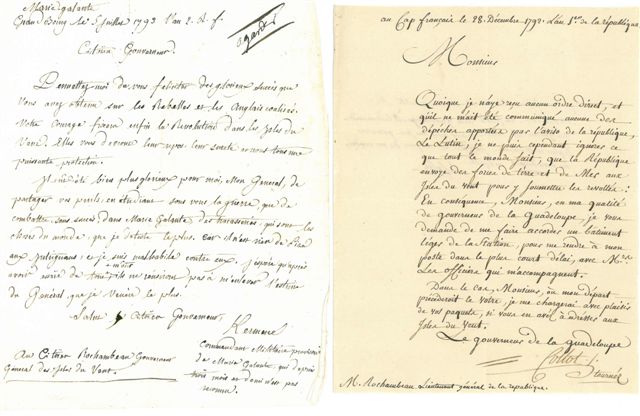 Marie galante
Grand Bourg le 5 juillet 1793 l'an 2. d. f.
Citoien Gouverneur
Permettez moi de vous feliciter des glorieux succès que
Vous avez obtenu sur les Rebelles et les Anglais coalisés.
Votre courage fixera enfin la Revolution dans les Isles du
Vent. Elles vous devront leur repos, leur sureté et nous tous une
puissante protection.
Il m'eut été bien plus glorieux pour moi, Mon General, de
partager vos perils, en étudiant sous vous la guerre que de
combattre sans succès dans Marie Galante des tracasseries, qui sont les
choses du monde, que je déteste le plus. Car il n'est rien de fixe
aux, et je suis malhabile contre eux. J'espere qu'après
avoir de ne reussiront pas à m'enlever l'estime
du General, que je Venere le plus.
Salut Citoien Gouverneur
Kermené
Commandant Militaire provisoire
de Marie Galante, qui depuis
trois mois et demi n'est pas
reconnu.
Au Citoien Rochambeau Gouverneur
General des Isles du Vent.
au Cap français le 28. Décembre 1792. L'an 1er. de la république
Monsieur
Quoique je n'aye reçu aucun ordre direct, et
qu'il ne m'ait été communiqué aucune des
dépêches apportées par l'aviso de la république,
Le Lutin, je ne puis cependant ignorer ce
que tout le monde sait, que la République
envoye des forces de terre et de Mer aux
Isles du Vent pour y soumettre les révoltés:
En conséquence, Monsieur, en ma qualité
de gouverneur de la Guadeloupe, je vous
demande de me faire accorder un bâtiment
léger de la Station, pour me rendre à mon
poste dans le plus court délai, avec Mrs.
Les officiers qui m'accompagnent.
Dans le cas, Monsieur, où mon départ
précéderoit le votre, je me chargerai avec plaisir
de vos paquets, si vous en aviez à adresser aux
Isles du Vent.
Le gouverneur de la guadeloupe
Collot
M. Rochambeau Lieutenant général de la république.